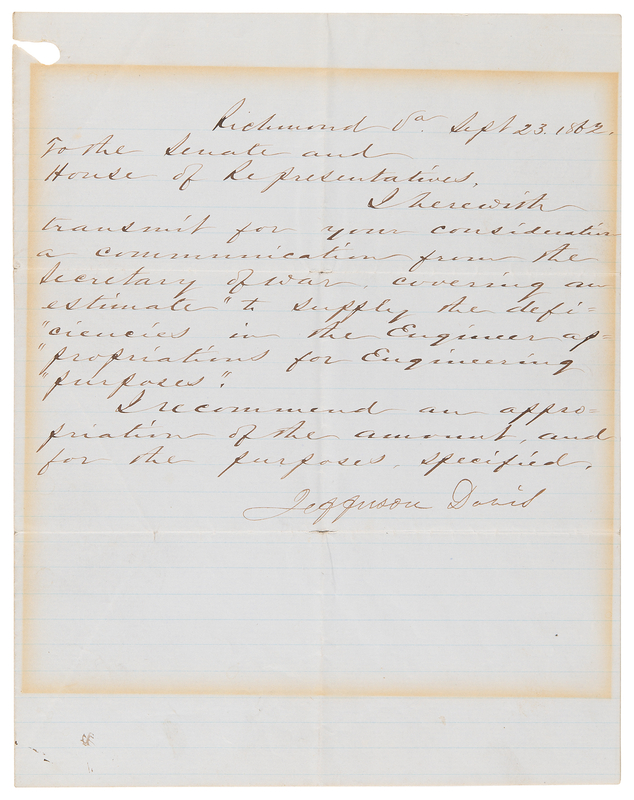 Richmond Va. Sept 23. 1862.
To the Senate and
House of Representatives,
I herewith
transmit for your consideration
a communication from the
Secretary of War, covering an
estimate "to supply the defi=
"ciencies in the Engineer ap=
"propriations for Engineering
"purposes".
I recommend an appro=
priation of the amount, and
for the purposes, specified.
Jefferson Davis